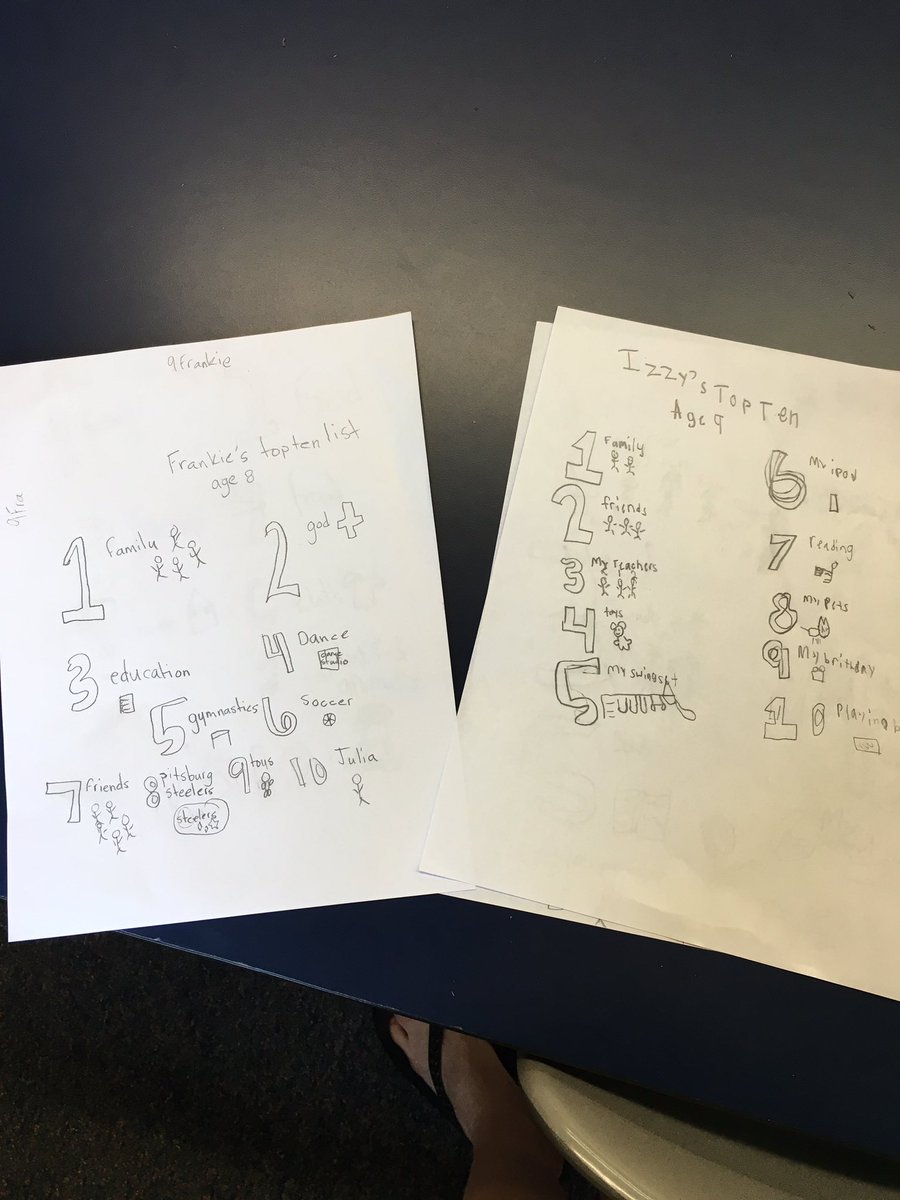 9frankie
9Fra
Frankie's top ten list
age 8
1 family
2 god
3 education
4 Dance
dance
studio
5 gymnastics
6 Soccer
7 friends
8 pitsburg
steelers
steelers
9 toys
10 Julia
Izzy's Top Ten
Age 9
1 Family
2 friends
3 My Teachers
4 toys
5 My swingset
6 My ipod
7 reading
8 my pets
9 My brithday
10 Playing